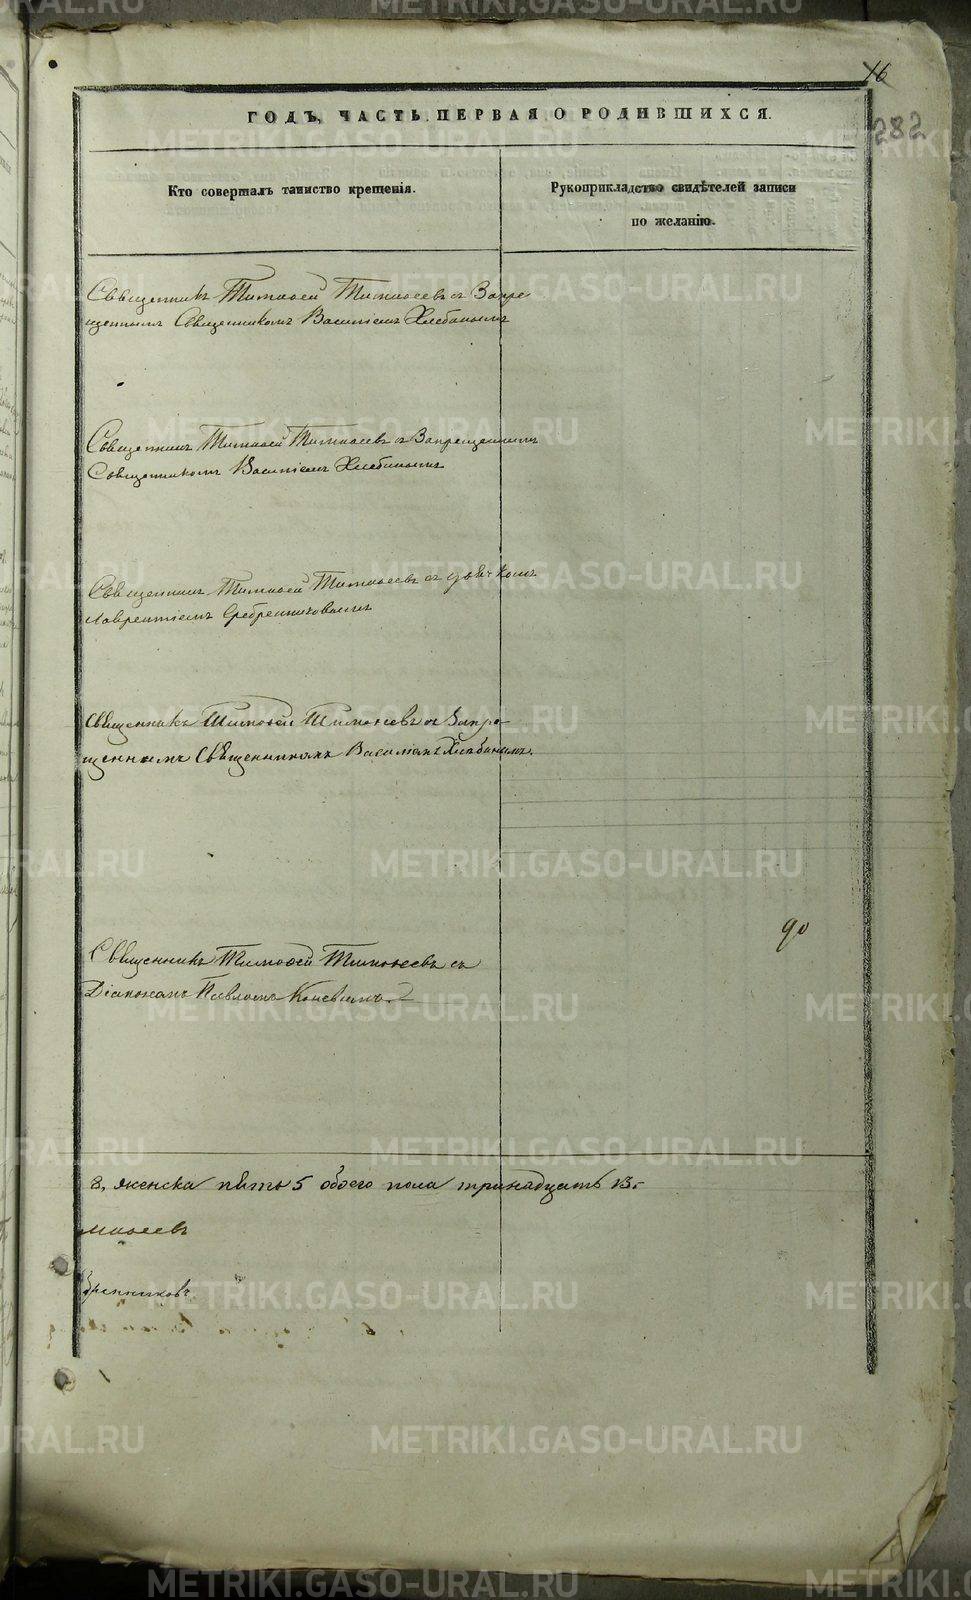 16
282
ГОДЪ, ЧАСТЬ ПЕРВАЯ О РОДИВШИХСЯ.
Кто совершалъ таинство крещенія.
Рукоприкладство свидѣтелей записи
по желанію.
Священникъ Тимоѳей Тимоѳеевъ съ Запре-
щеннымъ Священникомъ Василіемъ Хлебинымъ
Священникъ Тимоѳей Тимоѳеевъ съ Запрещеннымъ
Священникомъ Василіемъ Хлебинымъ
Священникъ Тимоѳей Тимоѳеевъ съ
Лаврентіемъ Сребренниковымъ
Священникъ Тимоѳей Тимоѳеевъ съ Запре-
щеннымъ Священникомъ Василіемъ Хлебинымъ.
90
Священникъ Тимоѳей Тимоѳеевъ съ
Діакономъ Павломъ
8, женска пять 5 обоего пола тринадцать 13.
моѳеевъ
бренниковъ
METRIKI.GASO-URAL.RU